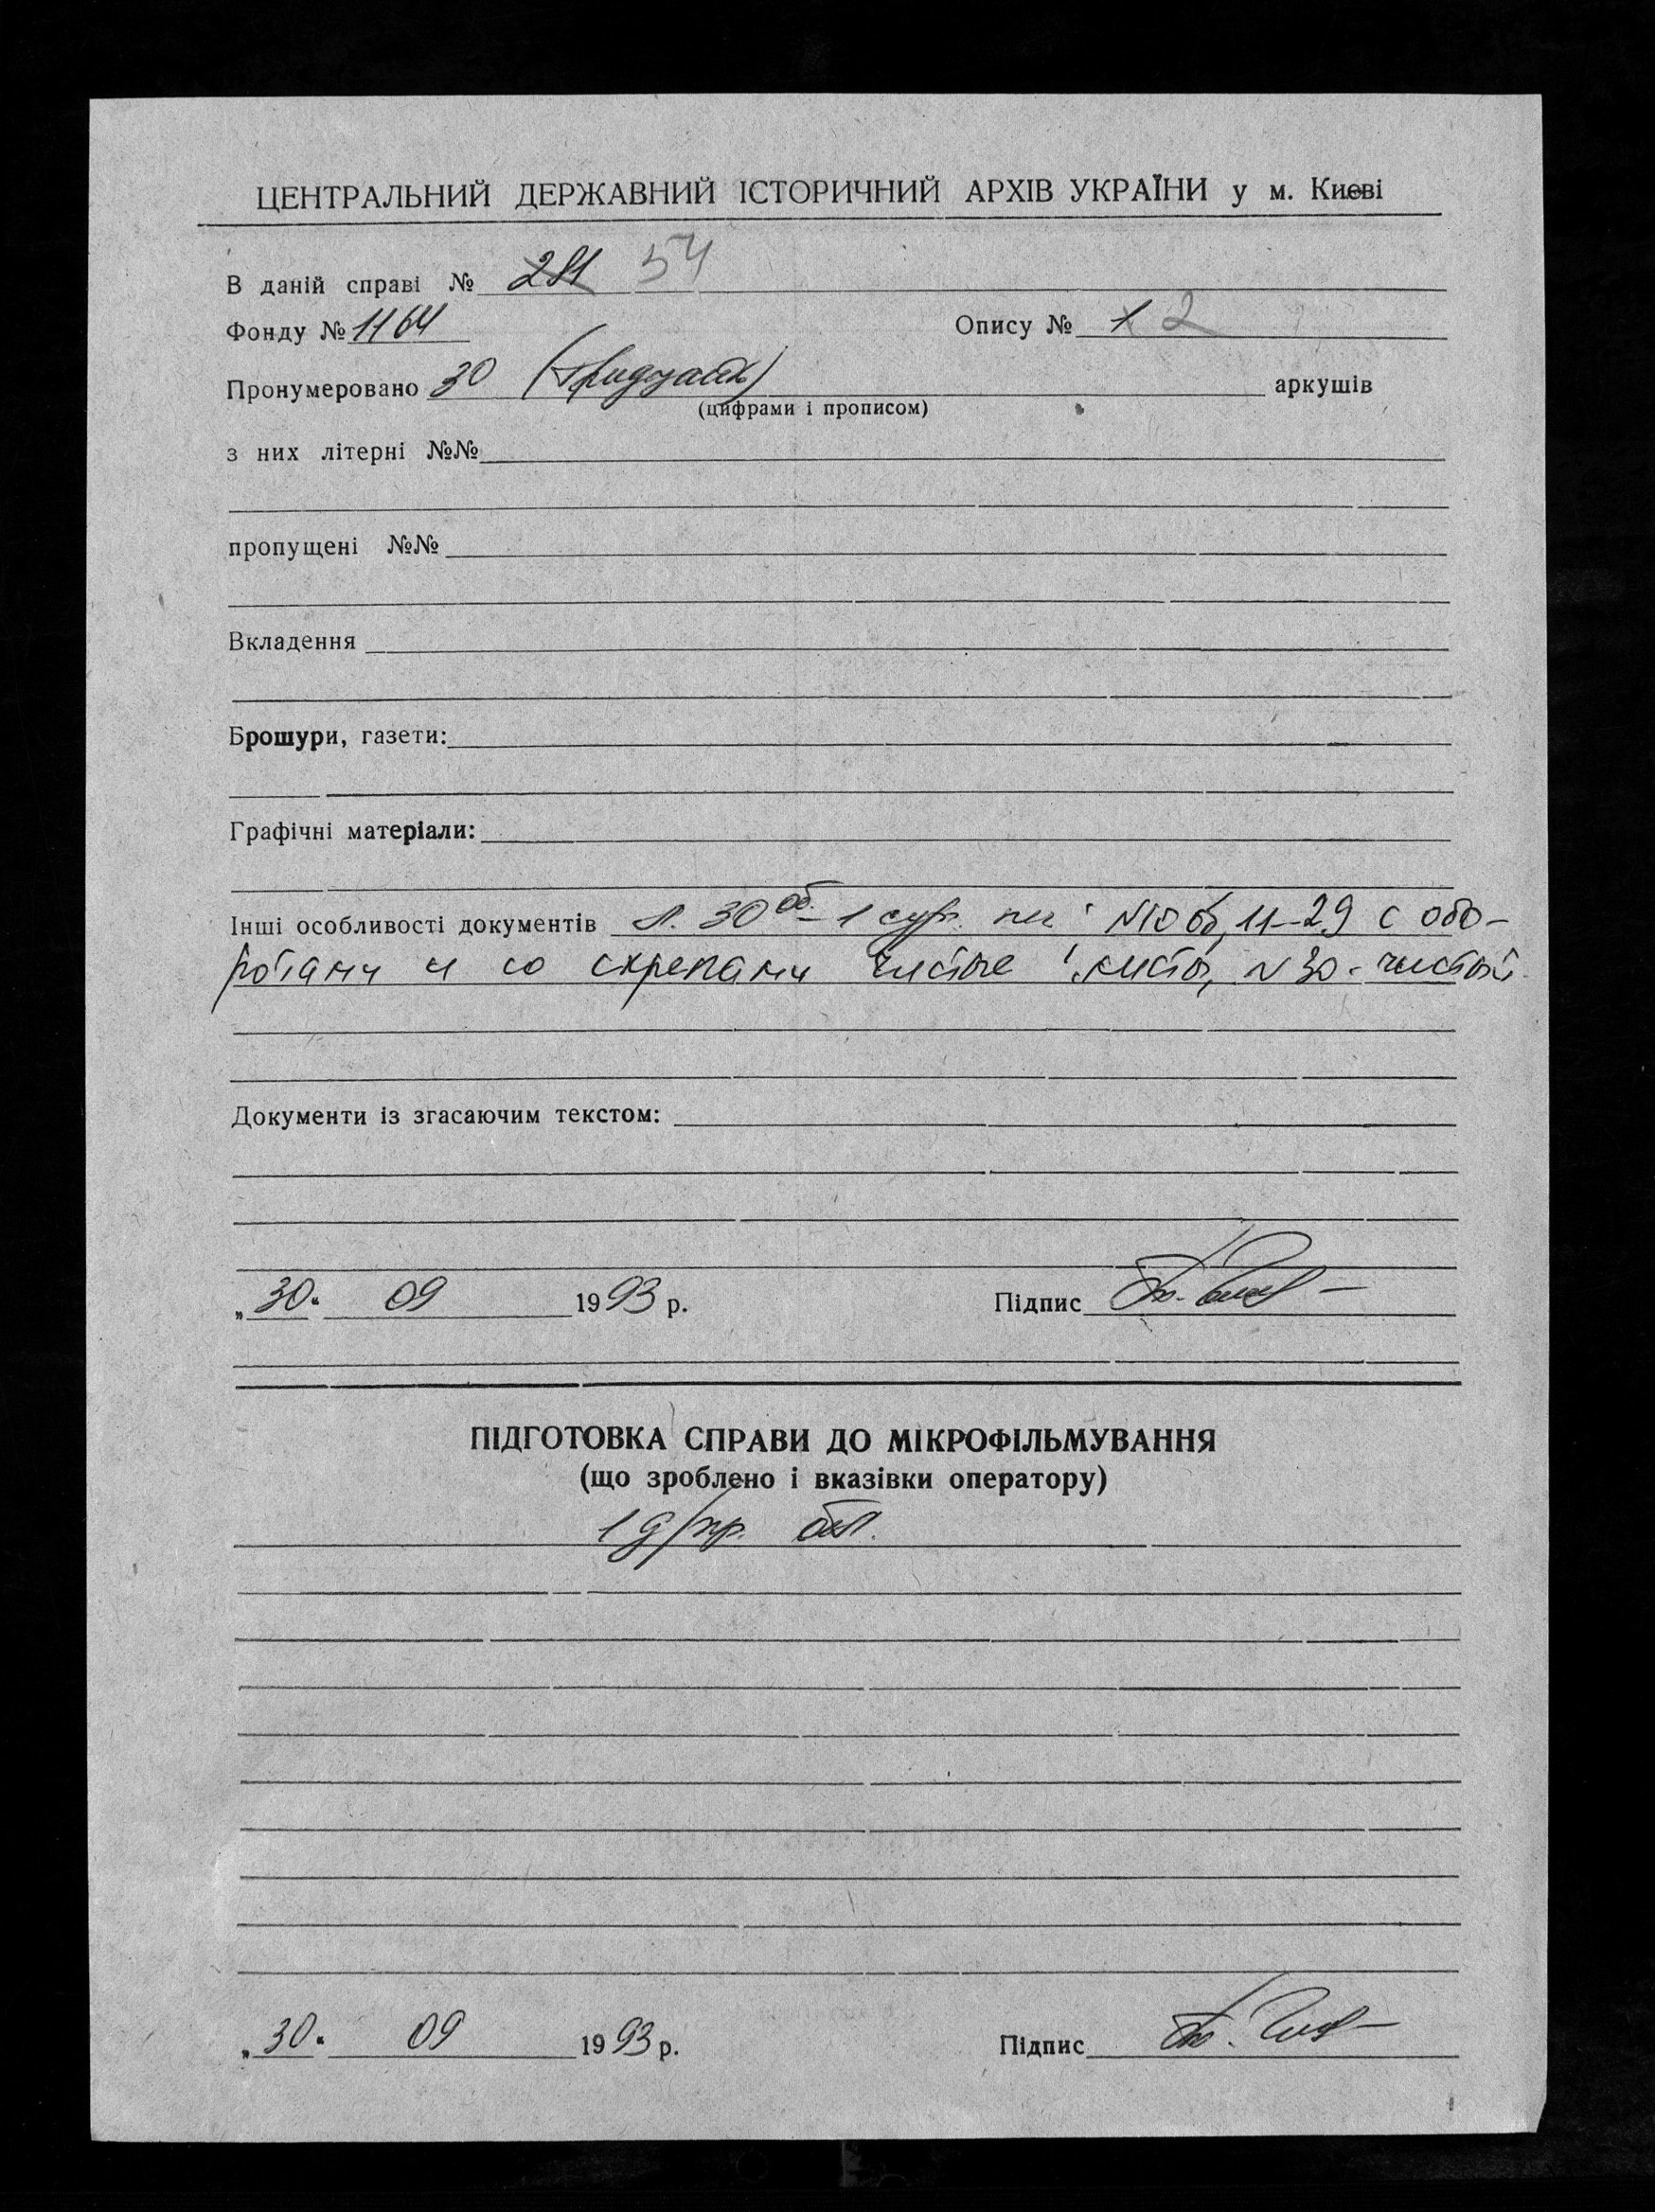 ЦЕНТРАЛЬНИЙ ДЕРЖАВНИЙ ІСТОРИЧНИЙ АРХІВ УКРАЇНИ у м. Києві
В даній справі № 281 54
Фонду № 1164 Опису № 1 2
Пронумеровано 30 (тридцать) аркушів
(цифрами і прописом)
з них літерні №№
пропущені №№
Вкладення
Брошури, газети:
Графічні матеріали:
Інші особливості документів Л. 30 об. – 1 сург. печ. N10 об, 11–29 с обо-
ротами и со скрепами чистые листы, N 30 - чистый
Документи із згасаючим текстом:
„30“ 09 1993 р. Підпис
ПІДГОТОВКА СПРАВИ ДО МІКРОФІЛЬМУВАННЯ
(що зроблено і вказівки оператору)
1
„30“ 09 1993 р. Підпис